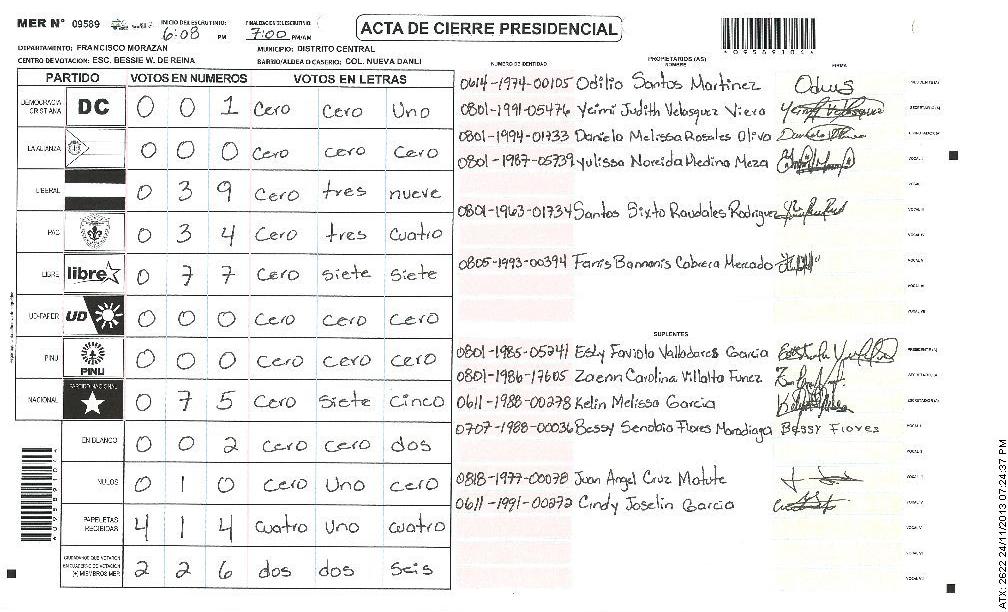 MER N° 09589 INICIO DEL ESCRUTINIO: 6:08 PM FINALIZACION ESCRUTINIO: 7:00 PM/AM
ACTA DE CIERRE PRESIDENCIAL
DEPARTAMENTO: FRANCISCO MORAZAN MUNICIPIO: DISTRITO CENTRAL
CENTRO DE VOTACION: ESC. BESSIE W. DE REINA BARRIO/ALDEA O CASERIO: COL. NUEVA DANLI
PARTIDO VOTOS EN NUMEROS VOTOS EN LETRAS
DEMOCRACIA CRISTIANA DC 0 0 1 Cero Cero Uno
LA ALIANZA 0 0 0 Cero cero Cero
LIBERAL 0 3 9 Cero tres nueve
PAC 0 3 4 Cero tres Cuatro
LIBRE libre 0 7 7 Cero siete siete
UD-FAPER UD 0 0 0 Cero cero Cero
PINU PINU 0 0 0 cero cero Cero
NACIONAL PARTIDO NACIONAL 0 7 5 Cero Siete Cinco
EN BLANCO 0 0 2 Cero cero dos
NULOS 0 1 0 Cero Uno cero
PAPELETAS RECIBIDAS 4 1 4 cuatro Uno cuatro
CIUDADANOS QUE VOTARON EN CUADERNO DE VOTACION (+) MIEMBROS MER 2 2 6 dos dos Seis
PROPIETARIOS (AS)
NUMERO DE IDENTIDAD NOMBRE FIRMA
0614-1974-00105 Odilio Santos Martinez
0801-1991-05476 Yeimi Judith Velasquez Viera
0801-1994-01733 Daniela Melissa Rosales Olivo
0801-1987-05739 Yulissa Noreida Medina Meza
0801-1963-01734 Santos Sixto Raudales Rodriguez
0805-1993-00394 Farris Bannanis Cabrera Mercado
SUPLENTES
0801-1985-05241 Esly Faviola Valladares Garcia
0801-1986-17605 Zaenn Carolina Villalta Funez
0611-1988-00278 Kelin Melissa Garcia
0707-1988-00036 Bessy Senobia Flores Maradiaga BESSY Flores
0818-1977-00078 Juan Angel Cruz Matute
0611-1991-00272 Cindy Joselin Garcia
ATX: 2622 24/11/2013 07:24:37 PM